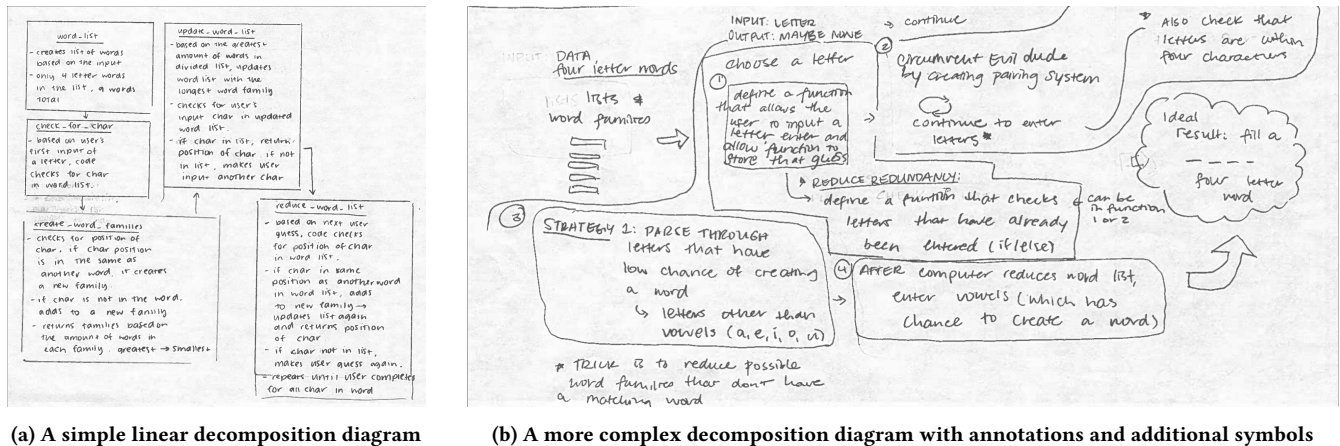 word_list
- creates list of words
based on the input
- only 4 letter words
in the list, 9 words
total
check_for_char
- based on user's
first input of
a letter, code
checks for char
in word list.
create_word_families
- checks for position of
char. if char position
is in the same as
another word, it creates
a new family.
- if char is not in the word,
adds to a new family
- returns families based on
the amount of words in
each family. greatest → smallest
update_word_list
- based on the greatest
amount of words in
divided list, updates
word list with the
longest word family
- checks for user's
input char in updated
word list.
- if char in list, return
position of char. if not
in list, makes user
input another char
reduce_word_list
- based on next user
guess, code checks
for position of char
in word list.
- if char in same
position as another word
in word list, adds
to new family →
updates list again
and returns position
of char
- if char not in list,
makes user guess again.
- repeats until user completes
for all char in word
(a) A simple linear decomposition diagram
INPUT: DATA
four letter words
lists lists *
word families
INPUT: LETTER
OUTPUT: MAYBE NONE
choose a letter
① define a function
that allows the
user to input a
letter enter and
allow function to
store that guess
→ continue
② circumvent Evil dude
by creating pairing system
→ continue to enter
letters*
* ALSO check that
letters are within
four characters
Ideal
result: fill a
_ _ _ _
four letter
word
* REDUCE REDUNDANCY:
→ define a function that checks
letters that have already
been entered (if/else)
← can be
in function
1 or 2
③ STRATEGY 1: PARSE THROUGH
letters that have
low chance of creating
a word
↳ letters other than
vowels (a, e, i, o, u)
④ AFTER computer reduces word list,
enter vowels (which has
chance to create a word)
* TRICK is to reduce possible
word families that don't have
a matching word
(b) A more complex decomposition diagram with annotations and additional symbols